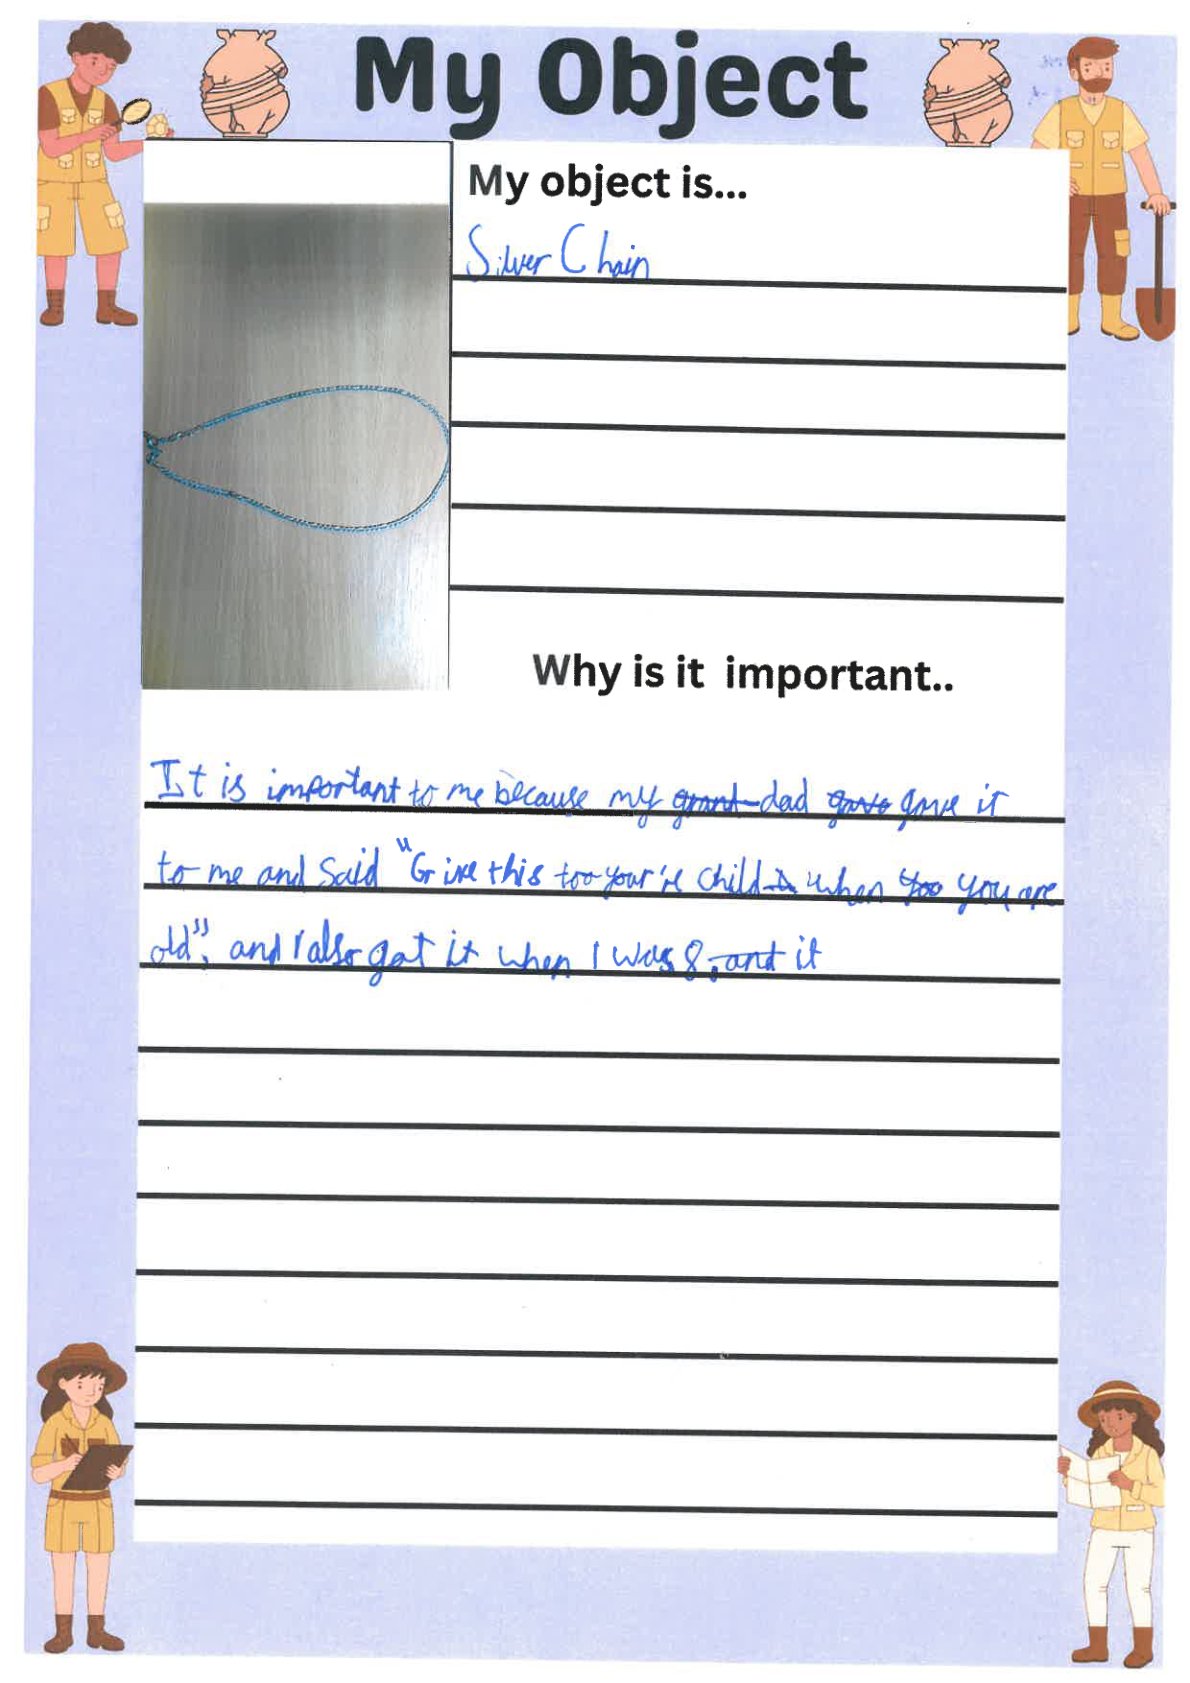 My Object
My object is...
Silver Chain
Why is it important..
It is important to me because my grand dad gave gave it
to me and Said "Give this too your're child when too you are
old", and I also got it when I was 8, and it